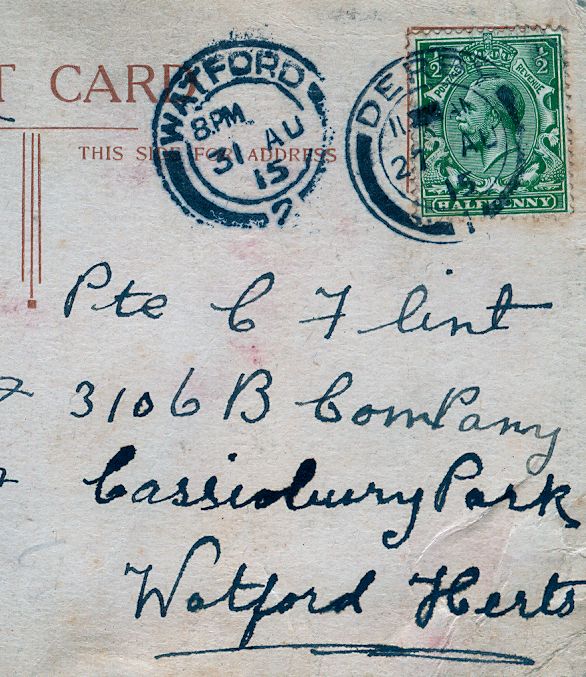 T CARD
THIS SIDE FOR ADDRESS
WATFORD
8.PM
31 AU
15
2
DERBY
27 AU
15
1
½ ½
POSTAGE REVENUE
HALFPENNY
Pte C Flint
3106 B Company
Cassiobury Park
Watford Herts